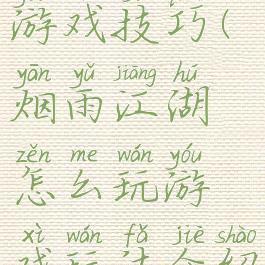 游戏技巧(
yān yǔ jiāng hú
烟雨江湖
zěn me wán yóu
怎么玩游
xì wán fǎ jiè shào
戏玩法介绍